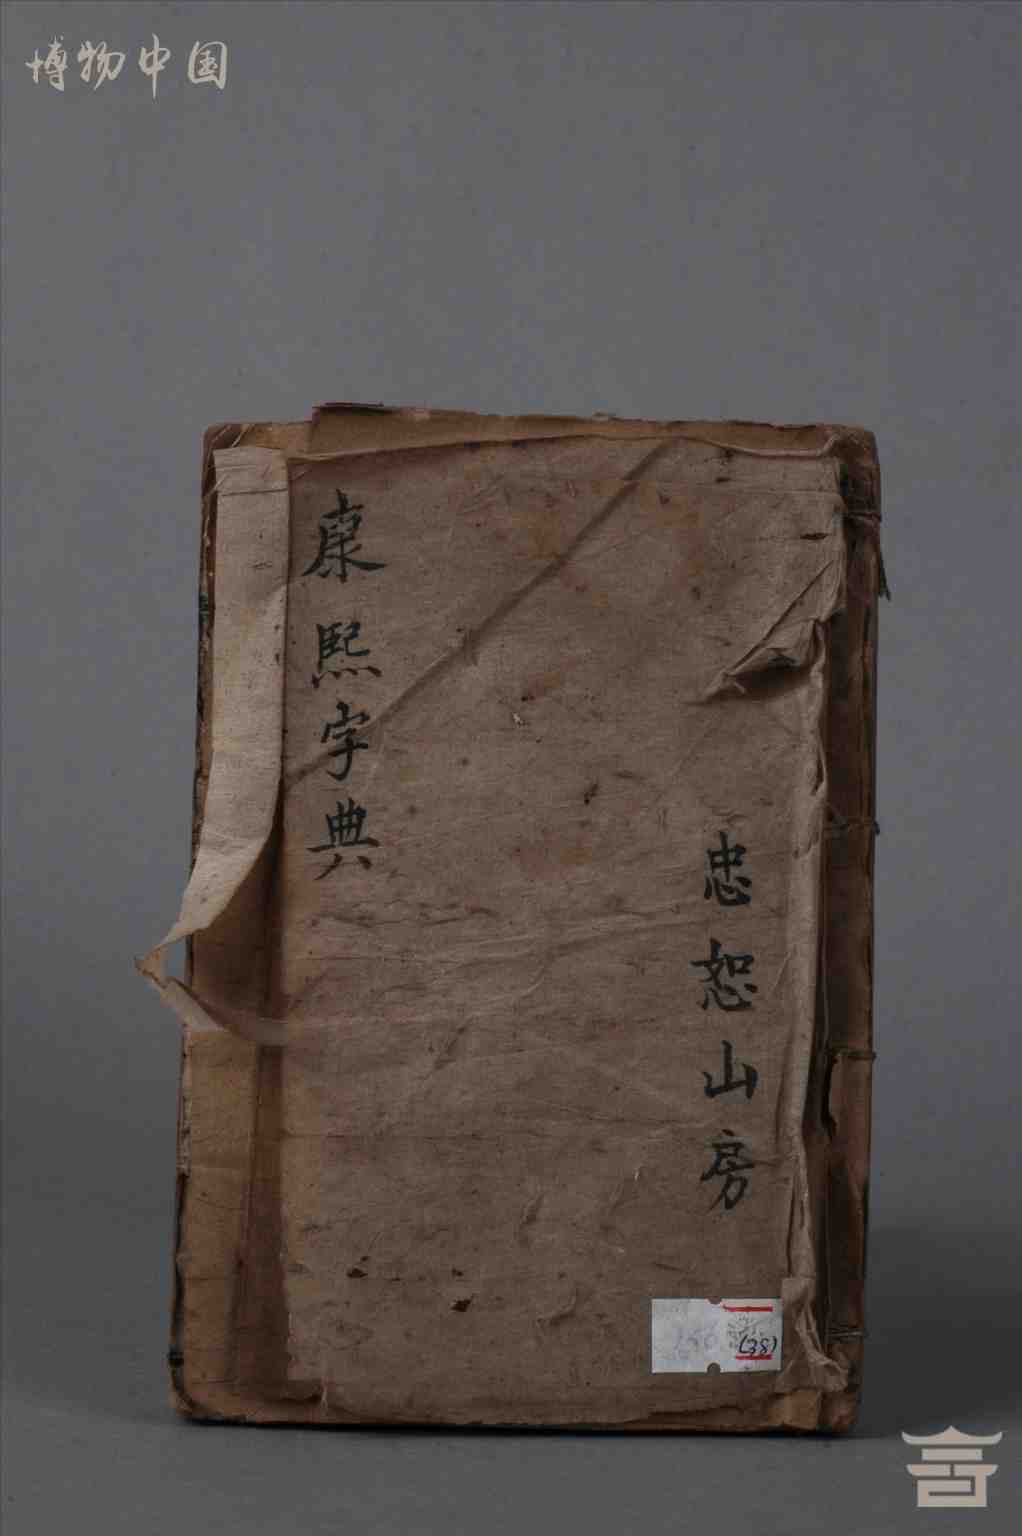 博物中国
康熙字典
忠恕山房
(38)